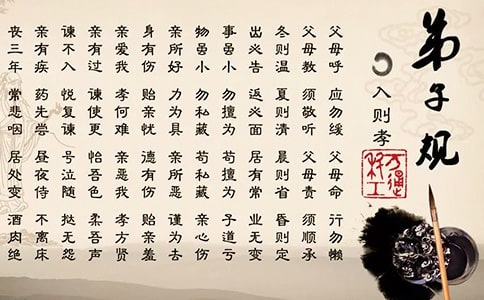 弟子规
入则孝
父母呼 应勿缓 父母命 行勿懒
父母教 须敬听 父母责 须顺承
冬则温 夏则清 晨则省 昏则定
出必告 返必面 居有常 业无变
事虽小 勿擅为 苟擅为 子道亏
物虽小 勿私藏 苟私藏 亲心伤
亲所好 力为具 亲所恶 谨为去
身有伤 贻亲忧 德有伤 贻亲羞
亲爱我 孝何难 亲恶我 孝方贤
亲有过 谏使更 怡吾色 柔吾声
谏不入 悦复谏 号泣随 挞无怨
亲有疾 药先尝 昼夜侍 不离床
丧三年 常悲咽 居处变 酒肉绝